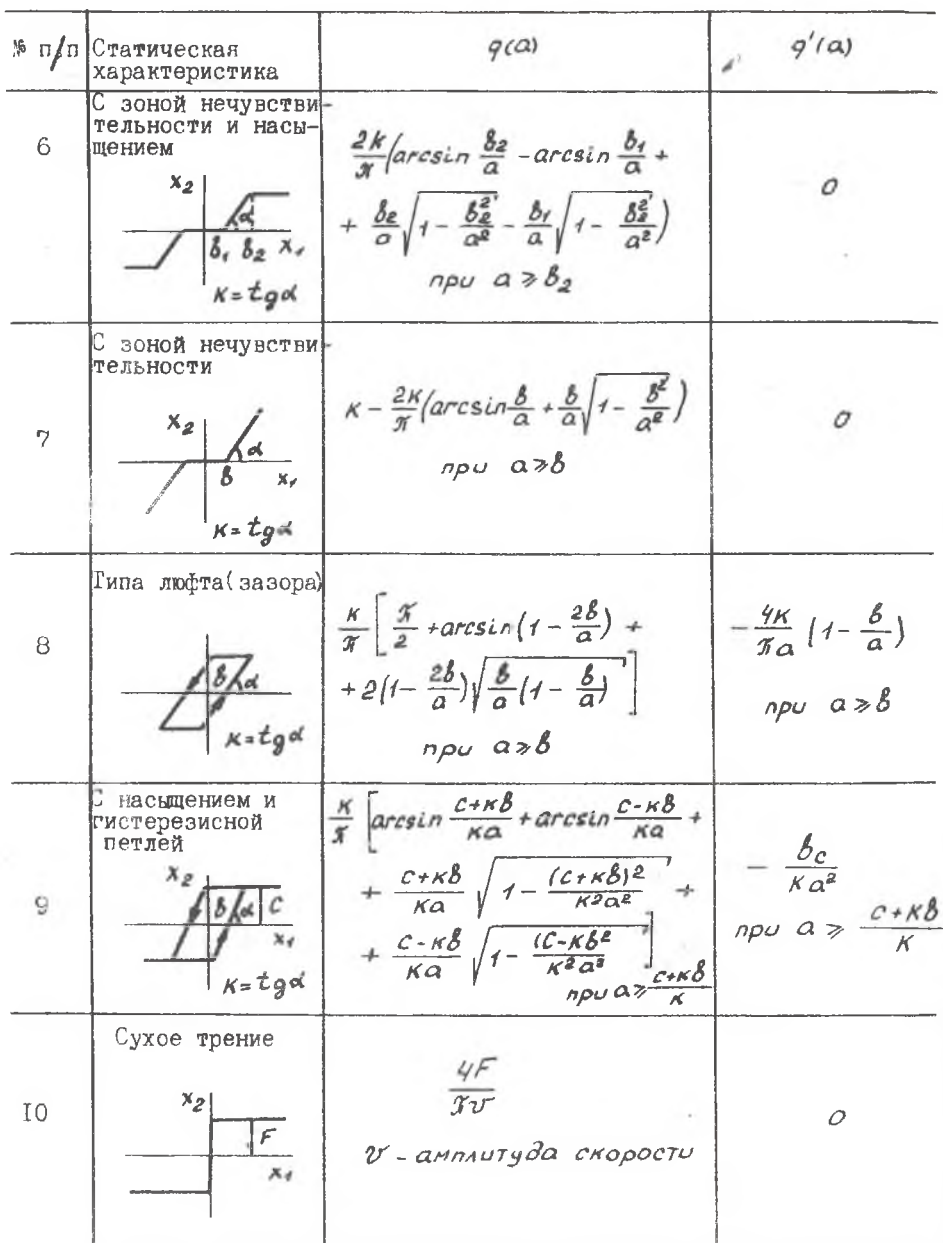 № п/п Статическая характеристика q(a) q'(a)
6 С зоной нечувстви-
тельности и насы-
щением
x₂
α
в₁ в₂ x₁
к=tgα
2k/π (arcsin в₂/a - arcsin в₁/a +
+ в₂/a √(1 - в₂²/a²) - в₁/a √(1 - в₂²/a²))
при a ⩾ в₂
0
7 С зоной нечувстви-
тельности
x₂
α
в x₁
к=tgα
к - 2к/π (arcsin в/a + в/a √(1 - в²/a²))
при a⩾в
0
8 Типа люфта(зазора)
в α
к=tgα
к/π [π/2 + arcsin (1 - 2в/a) +
+ 2(1 - 2в/a) √(в/a (1 - в/a))]
при a⩾в
- 4к/πa (1 - в/a)
при a⩾в
9 С насыщением и
гистерезисной
петлей
x₂
в α C
x₁
к=tgα
к/π [arcsin c+кв/кa + arcsin c-кв/кa +
+ c+кв/кa √(1 - (c+кв)²/к²a²) +
+ c-кв/кa √(1 - (c-кв²/к²a²)]
при a⩾ c+кв/к
- вc/кa²
при a ⩾ c+кв/к
I0 Сухое трение
x₂
F
x₁
4F/πv
v - амплитуда скорости
0